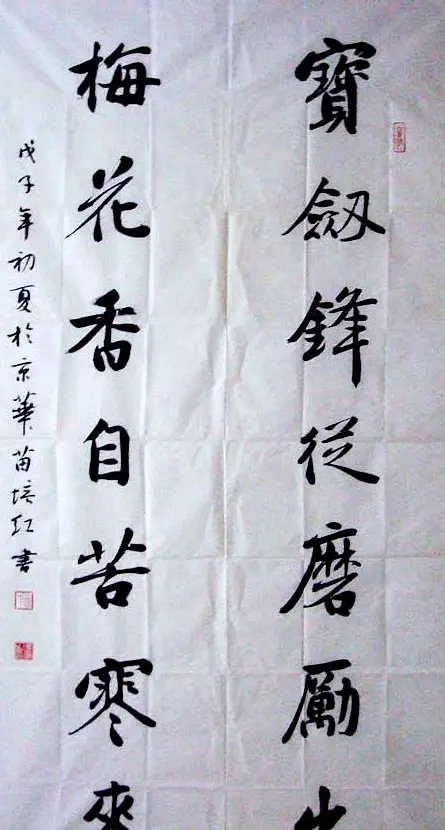 寶劔鋒從磨勵出
梅花香自苦寒來
戊子年初夏於京華苗培红書